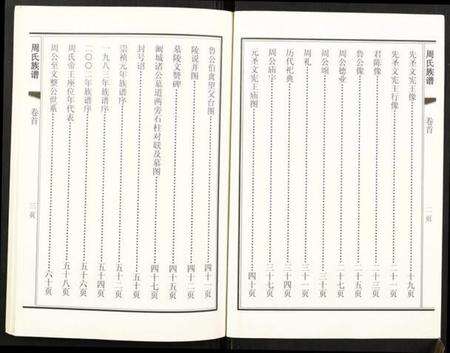 周氏族谱
卷首
二页
先圣文宪王像 十九页
先圣文宪王行像 二十一页
君陈像 二十三页
鲁公像 二十五页
周公德业 二十七页
周公颂 三十页
周礼 三十一页
历代祀典 三十二页
周公庙宇 三十七页
元圣文宪王庙图 四十页
鲁公伯禽望父台图 四十一页
陵说并图 四十二页
墓陵文赞碑 四十五页
阙城诸公墓道两旁石柱对联及墓图 四十七页
封号园 五十页
崇祯元年族谱序 五十二页
一九八二年族谱序 五十四页
二〇〇二年族谱序 五十六页
周氏帝王座位年代表 五十八页
周公至文整公世系 六十页
周氏族谱
卷首
三页